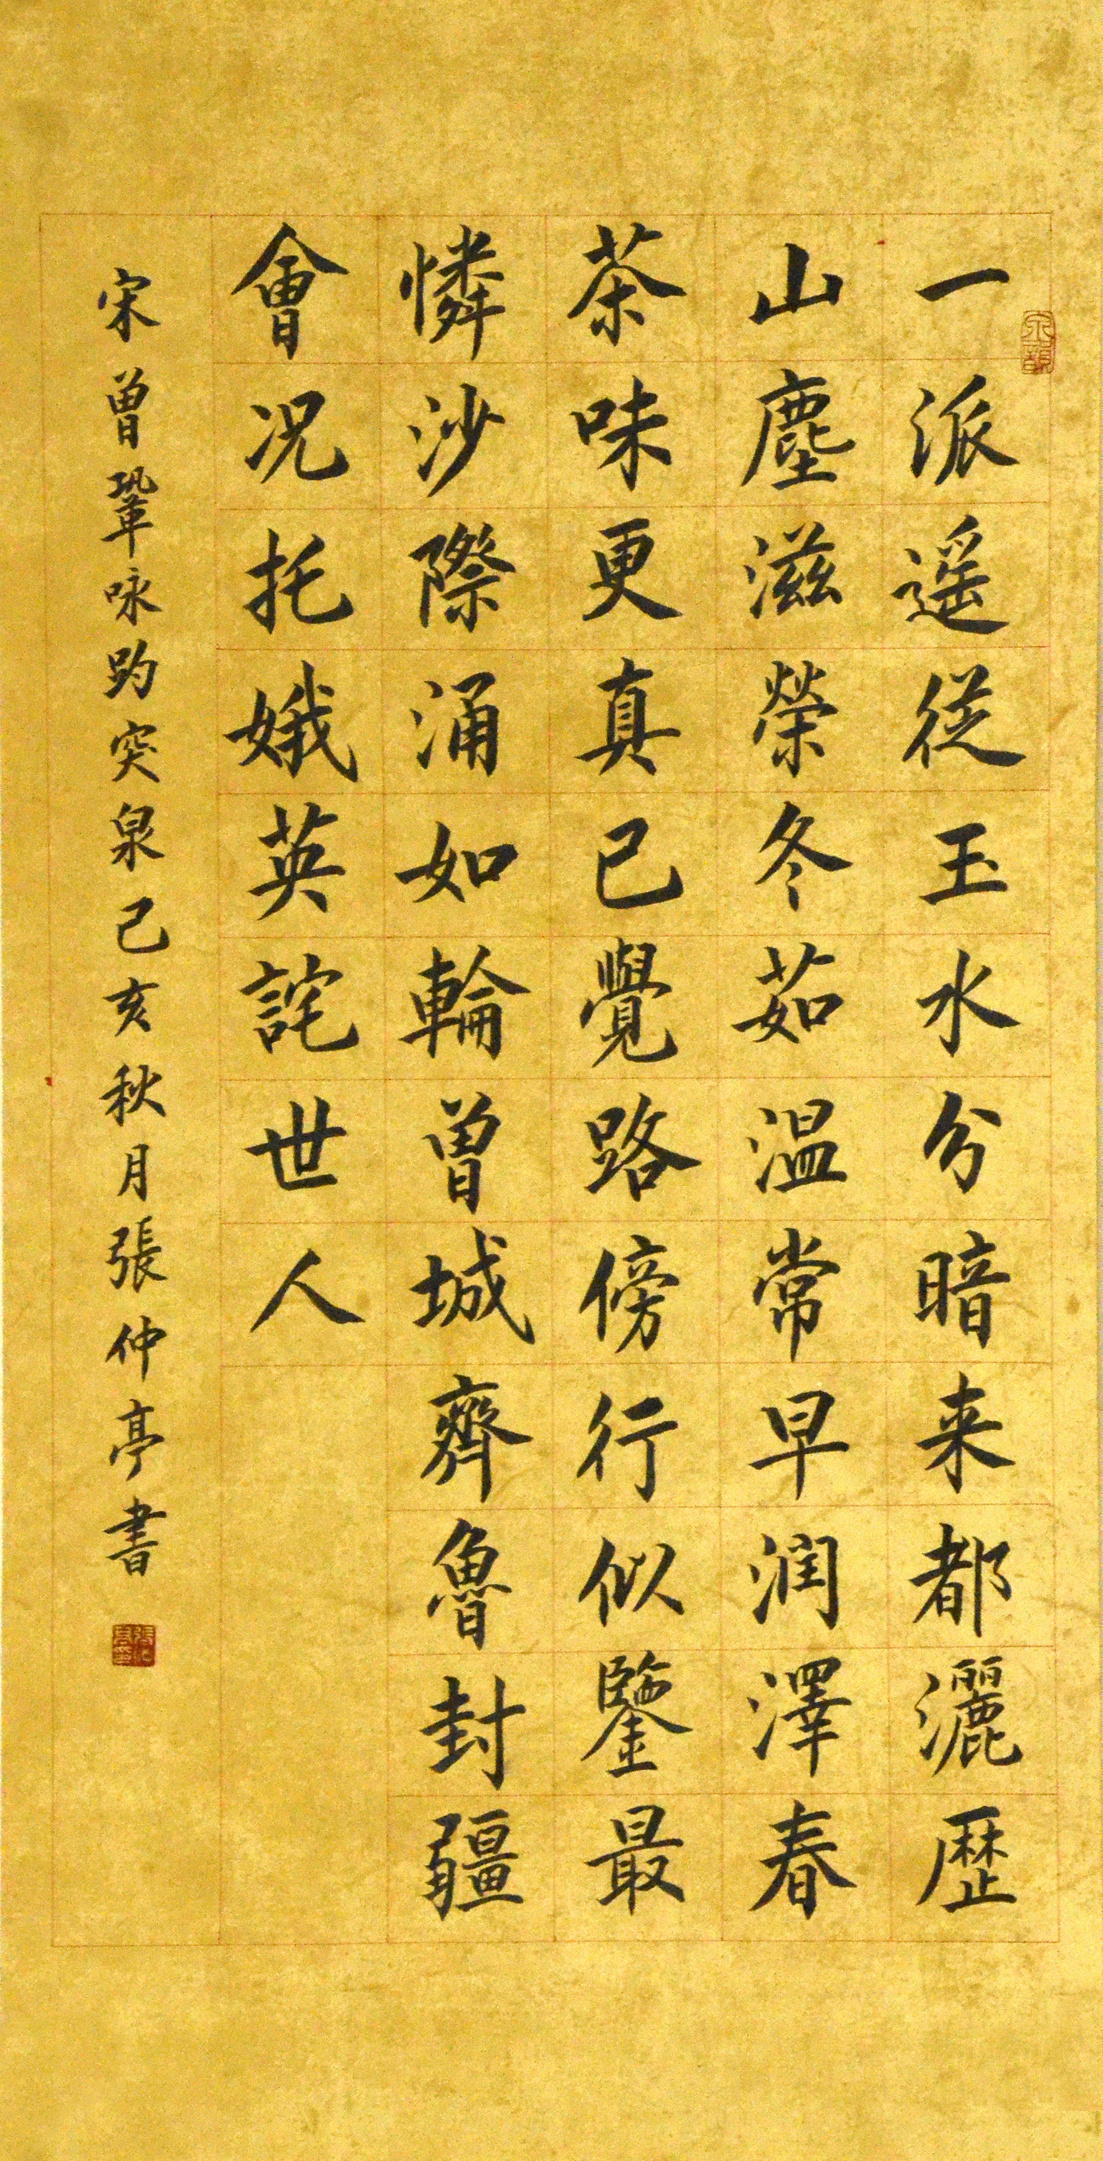 一派遥從玉水分暗来都灑歷
山塵滋榮冬茹温常早润澤春
茶味更真已覺路傍行似鑒最
憐沙際涌如輪曾城齊魯封疆
會况托娥英詫世人
宋曾鞏咏趵突泉己亥秋月張仲亭書